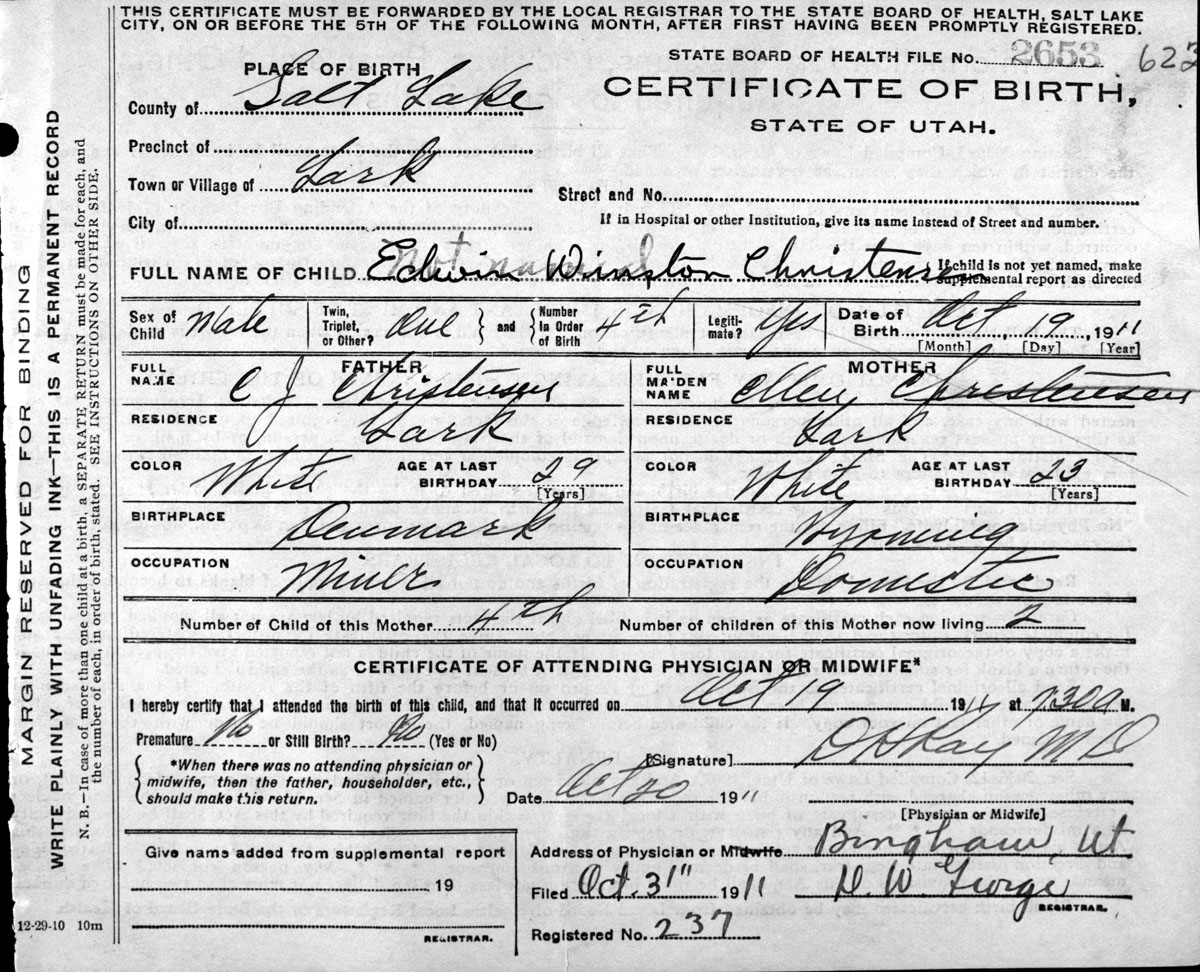 THIS CERTIFICATE MUST BE FORWARDED BY THE LOCAL REGISTRAR TO THE STATE BOARD OF HEALTH, SALT LAKE
CITY, ON OR BEFORE THE 5TH OF THE FOLLOWING MONTH, AFTER FIRST HAVING BEEN PROMPTLY REGISTERED.
STATE BOARD OF HEALTH FILE No. 2653 622
PLACE OF BIRTH
CERTIFICATE OF BIRTH,
STATE OF UTAH.
County of Salt Lake
Precinct of
Town or Village of Lark
Street and No.
City of
If in Hospital or other Institution, give its name instead of Street and number.
Not named
FULL NAME OF CHILD Edwin Winston Christensen { If child is not yet named, make
supplemental report as directed
Sex of Child Male Twin, Triplet, or Other? One } and { Number In Order of Birth 4th Legitimate? Yes Date of Birth Oct 19, 1911
[Month] [Day] [Year]
FATHER MOTHER
FULL NAME C J Christensen FULL MAIDEN NAME Ellen Christensen
RESIDENCE Lark RESIDENCE Lark
COLOR White AGE AT LAST BIRTHDAY 29 [Years] COLOR White AGE AT LAST BIRTHDAY 23 [Years]
BIRTHPLACE Denmark BIRTHPLACE Wyoming
OCCUPATION Miner OCCUPATION Domestic
Number of Child of this Mother 4th Number of children of this Mother now living 2
CERTIFICATE OF ATTENDING PHYSICIAN OR MIDWIFE*
I hereby certify that I attended the birth of this child, and that it occurred on Oct 19 1911 at 7.30 a M.
Premature No or Still Birth? No (Yes or No)
[Signature] Kay MD
{ *When there was no attending physician or
midwife, then the father, householder, etc.,
should make this return. }
Date Oct 20 1911
[Physician or Midwife]
Give name added from supplemental report
19
REGISTRAR.
Address of Physician or Midwife Bingham, Ut
Filed Oct. 31" 1911 D W George
REGISTRAR.
Registered No. 237
12-29-10 10m
MARGIN RESERVED FOR BINDING
WRITE PLAINLY WITH UNFADING INK—THIS IS A PERMANENT RECORD
N. B.—In case of more than one child at a birth, a SEPARATE RETURN must be made for each, and
the number of each, in order of birth, stated. SEE INSTRUCTIONS ON OTHER SIDE.